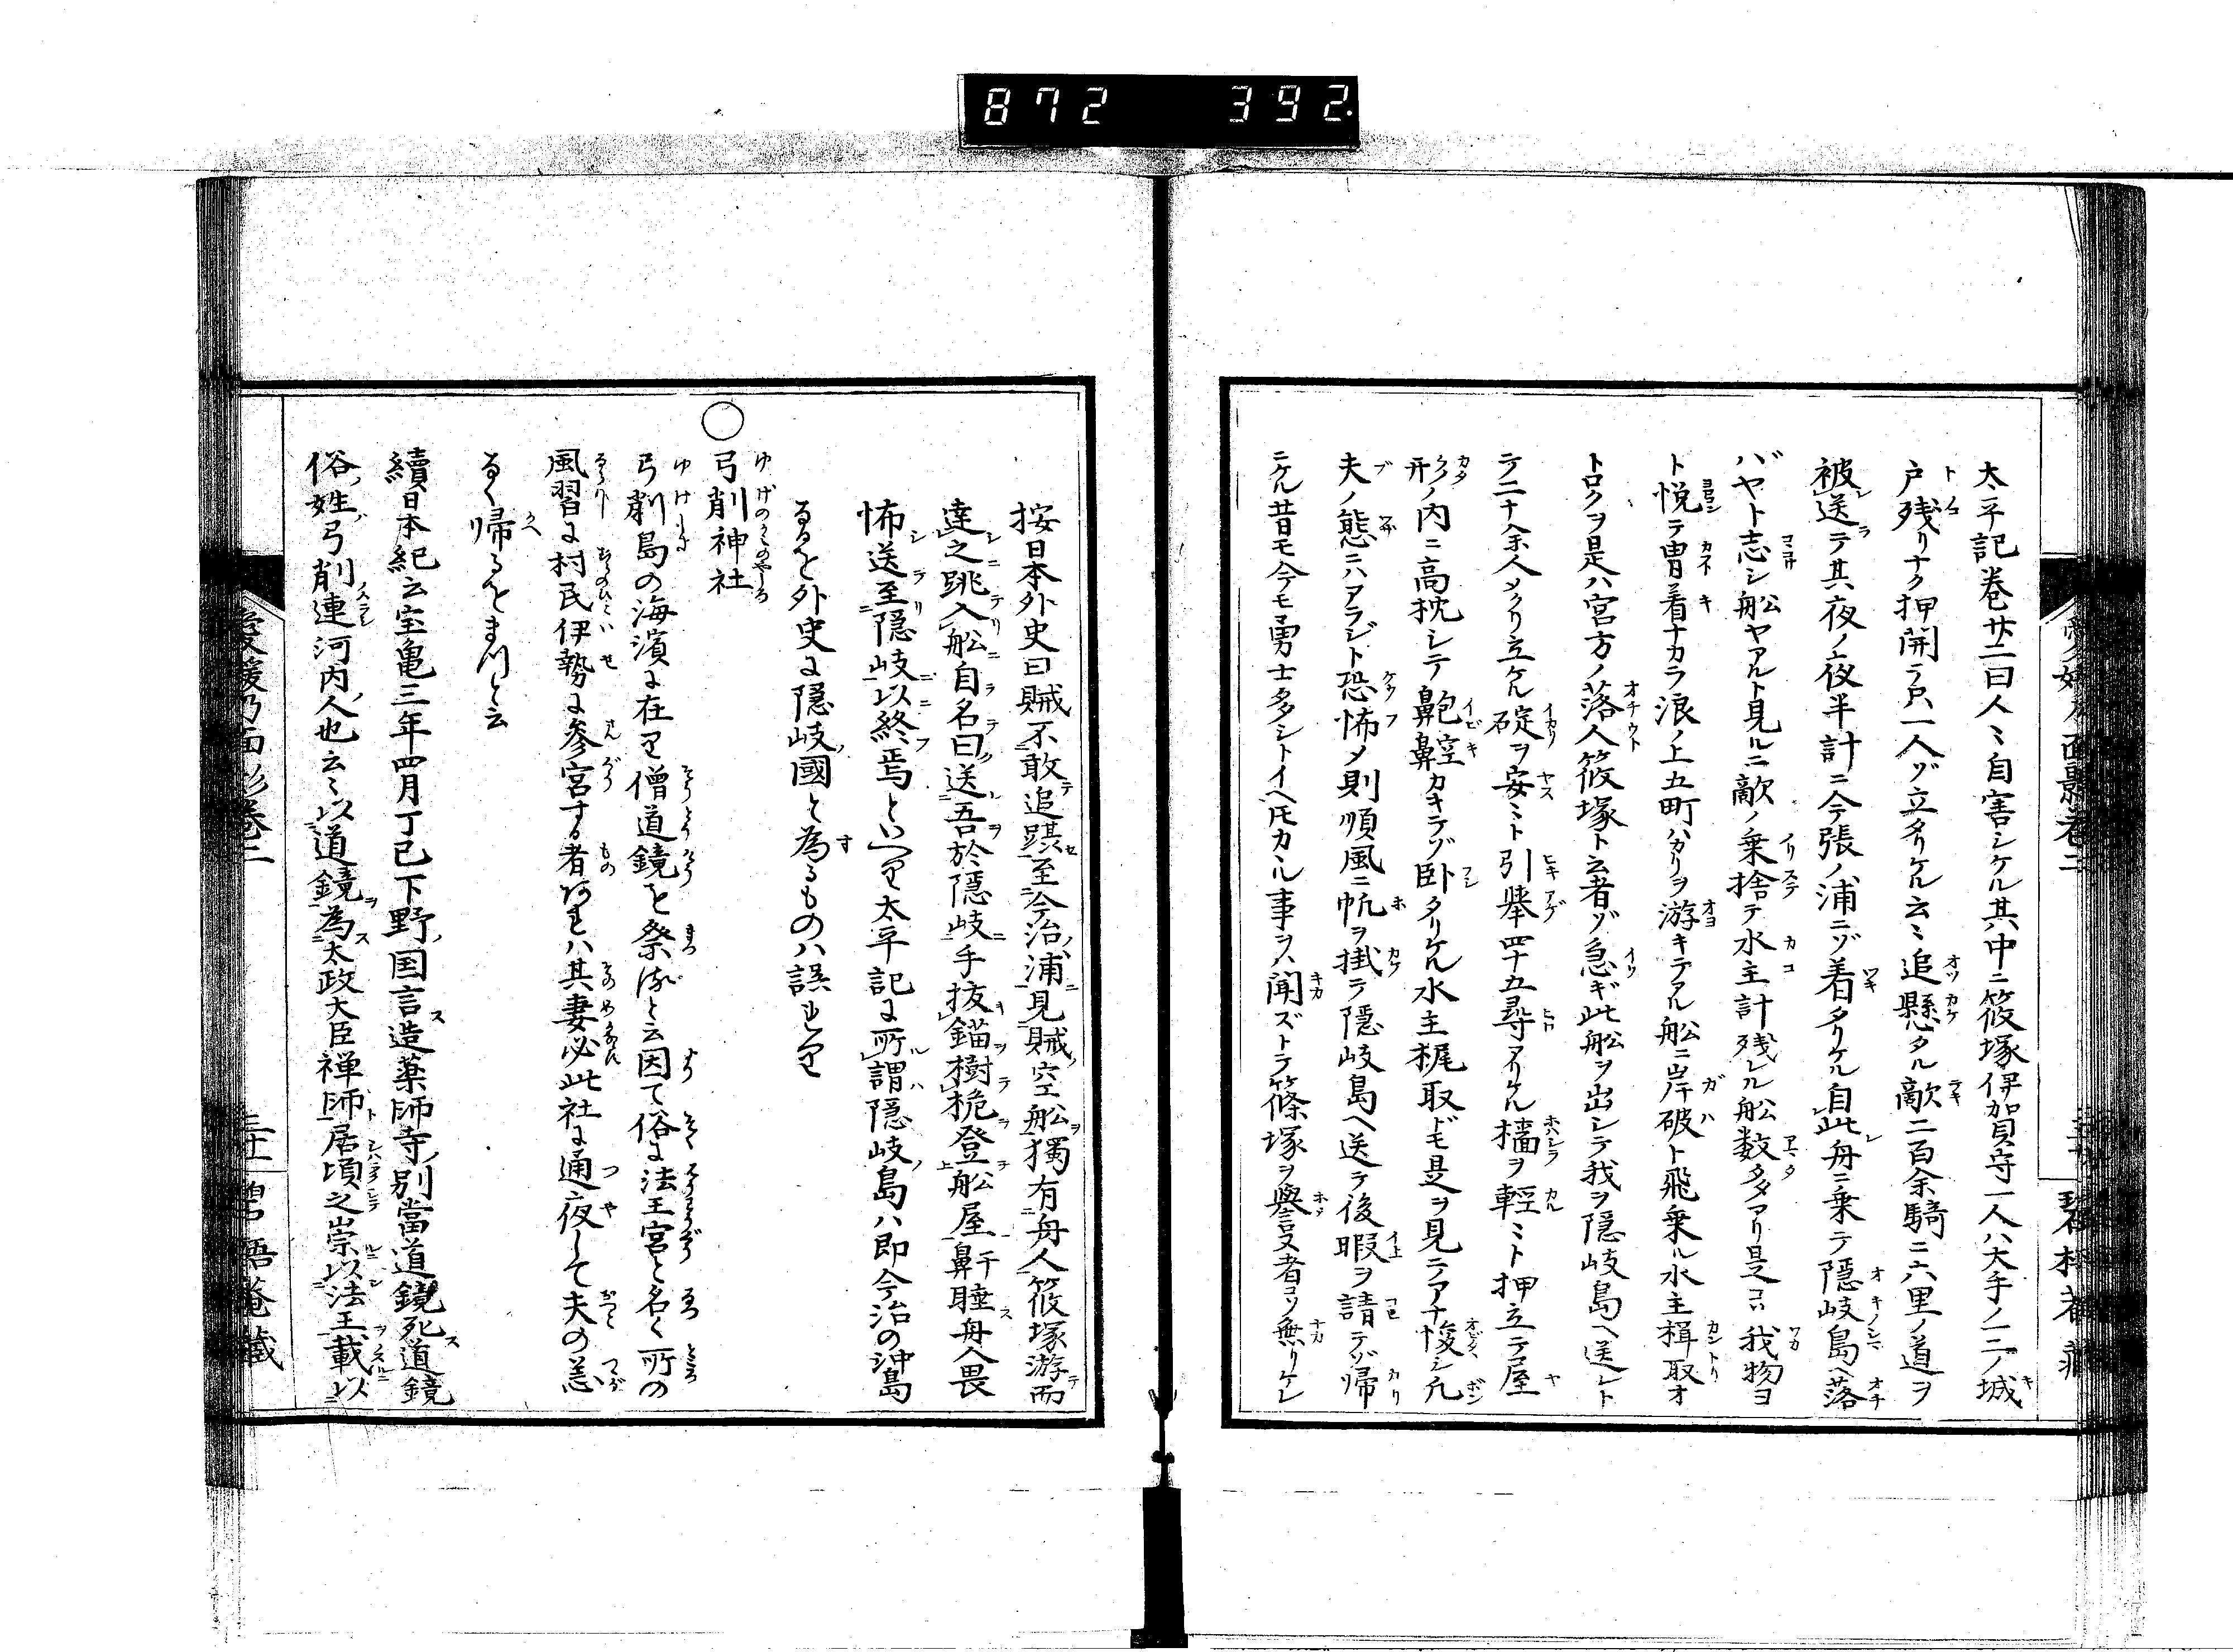 872 392
太平記巻廿二曰人〻自害シケル其中ニ篠塚伊賀守一人ハ大手ノ一二ノ城
戸残リナク押開テ只一人ゾ立タリケル云〻追懸タル敵二百余騎ニ六里ノ道ヲ
被送テ其夜ノ夜半計ニ今張ノ浦ニゾ着タリケル自此舟ニ乗テ隠岐島ヘ落
バヤト志シ船ヤアルト見ルニ敵ノ乗捨テ水主計残レル船数タアリ是コソ我物ヨ
ト悦テ冑着ナカラ浪ノ上五町ハカリヲ游キテアル船ニ岸破ト飛乗ル水主楫取オ
トロクヲ是ハ宮方ノ落人篠塚ト云者ゾ急ギ此船ヲ出シテ我ヲ隠岐島ヘ送レト
テ二十余人メクリ立ケル碇ヲ安〻ト引挙四十五尋アリケル檣ヲ軽〻ト押立テ屋
形ノ内ニ高枕シテ鼾カキテゾ臥タリケル水主梶取ドモ是ヲ見テアナ悛シ凡
夫ノ態ニハアラジト恐怖メ則順風ニ帆ヲ掛テ隠岐島ヘ送テ後暇ヲ請テゾ帰
ニケル昔モ今モ勇士多シトイヘ𪜈カヽル事ヲハ聞ズトテ篠塚ヲ誉ヌ者コソ無リケレ
按日本外史曰賊不敢追躡至今治浦見賊空船獨有舟人篠塚游而
達之跳入船自名曰送吾於隠岐手抜錨樹桅登船屋鼾睡舟人畏
怖送至隠岐以終焉といへり太平記に所謂隠岐島ハ即今治の沖島
なるを外史に隠岐國と為るものハ誤れり
○弓削神社
弓削島の海濱に在り僧道鏡を祭ると云因て俗に法王宮と名く所の
風習に村民伊勢に参宮する者あれハ其妻必此社に通夜して夫の恙
なく帰るをまつと云
續日本紀云宝亀三年四月丁巳下野国言造薬師寺別當道鏡死道鏡
俗姓弓削連河内人也云〻以道鏡為太政大臣禅師居頃之崇以法王載以
愛媛乃面影巻二